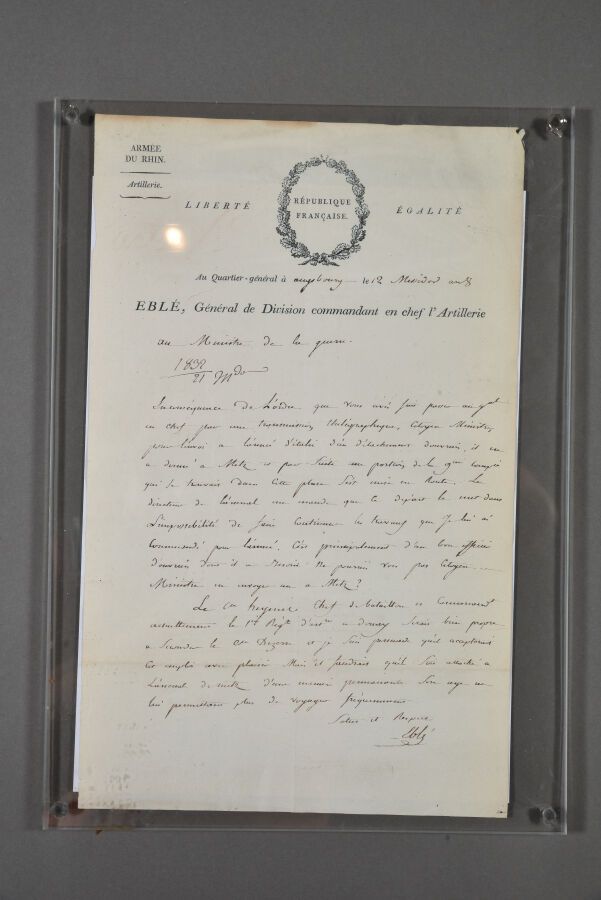 ARMÉE
DU RHIN.
Artillerie.
LIBERTÉ
RÉPUBLIQUE
FRANÇAISE.
ÉGALITÉ
Au Quartier-général à augsbourg le 12 Messidor an 8
EBLÉ, Général de Division commandant en chef l'Artillerie
au Ministre de la guerre.
1838
21 Mdor
de L'ordre que vous avés fait passer au gal
en chef par une transmission thélégraphique, Citoyen Ministre,
pour l'envoi a l'armée d'italie d'un détachement d'ouvriers, il en
a donné a Metz et par Suite une portion de la 9me compie
qui se trouvait dans cette place s'est mise en Route. Le
directeur de l'arsenal me mande que ce départ le met dans
L'impossibilité de faire Continuer les travaux que Je lui ai
Commandé pour l'armée. C'est principalement d'un bon officier
d'ouvriers dont il a Besoin. Ne pourriés vous pas Citoyen
Ministre en envoyer un a Metz?
Le Cen Chef de bataillon et Commandt
actuellement le 1er Régt d'arte a douay Serait bien propre
a Seconder le Cen et je Suis persuadé qu'il accepterait
Cet emploi avec plaisir Mais il faudrait qu'il Soit attaché a
L'arsenal de metz d'une manière permanente Son age ne
lui permettant plus de voyager fréquemment
Salut et Respect
Eblé